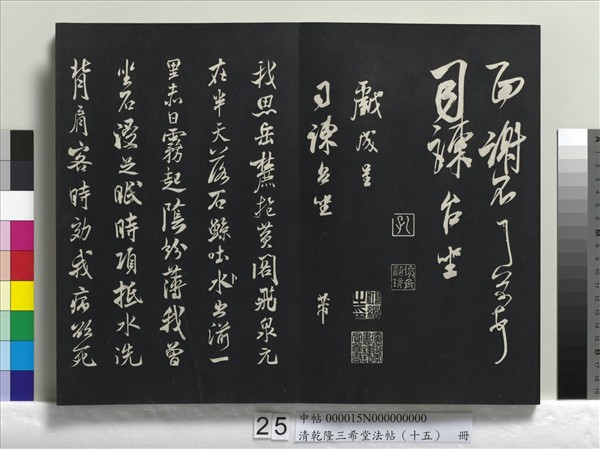 面謝不
司諫台坐
戲成呈
司諫台坐
芾
我思岳麓抱黃閣飛泉元
在半天落石鯨吐水出湔一
里赤日霧起陰紛薄我曾
坐石浸足眠時項抵水洗
背肩客時效我病欲死
25
中帖 000015N000000000
清乾隆三希堂法帖（十五） 冊